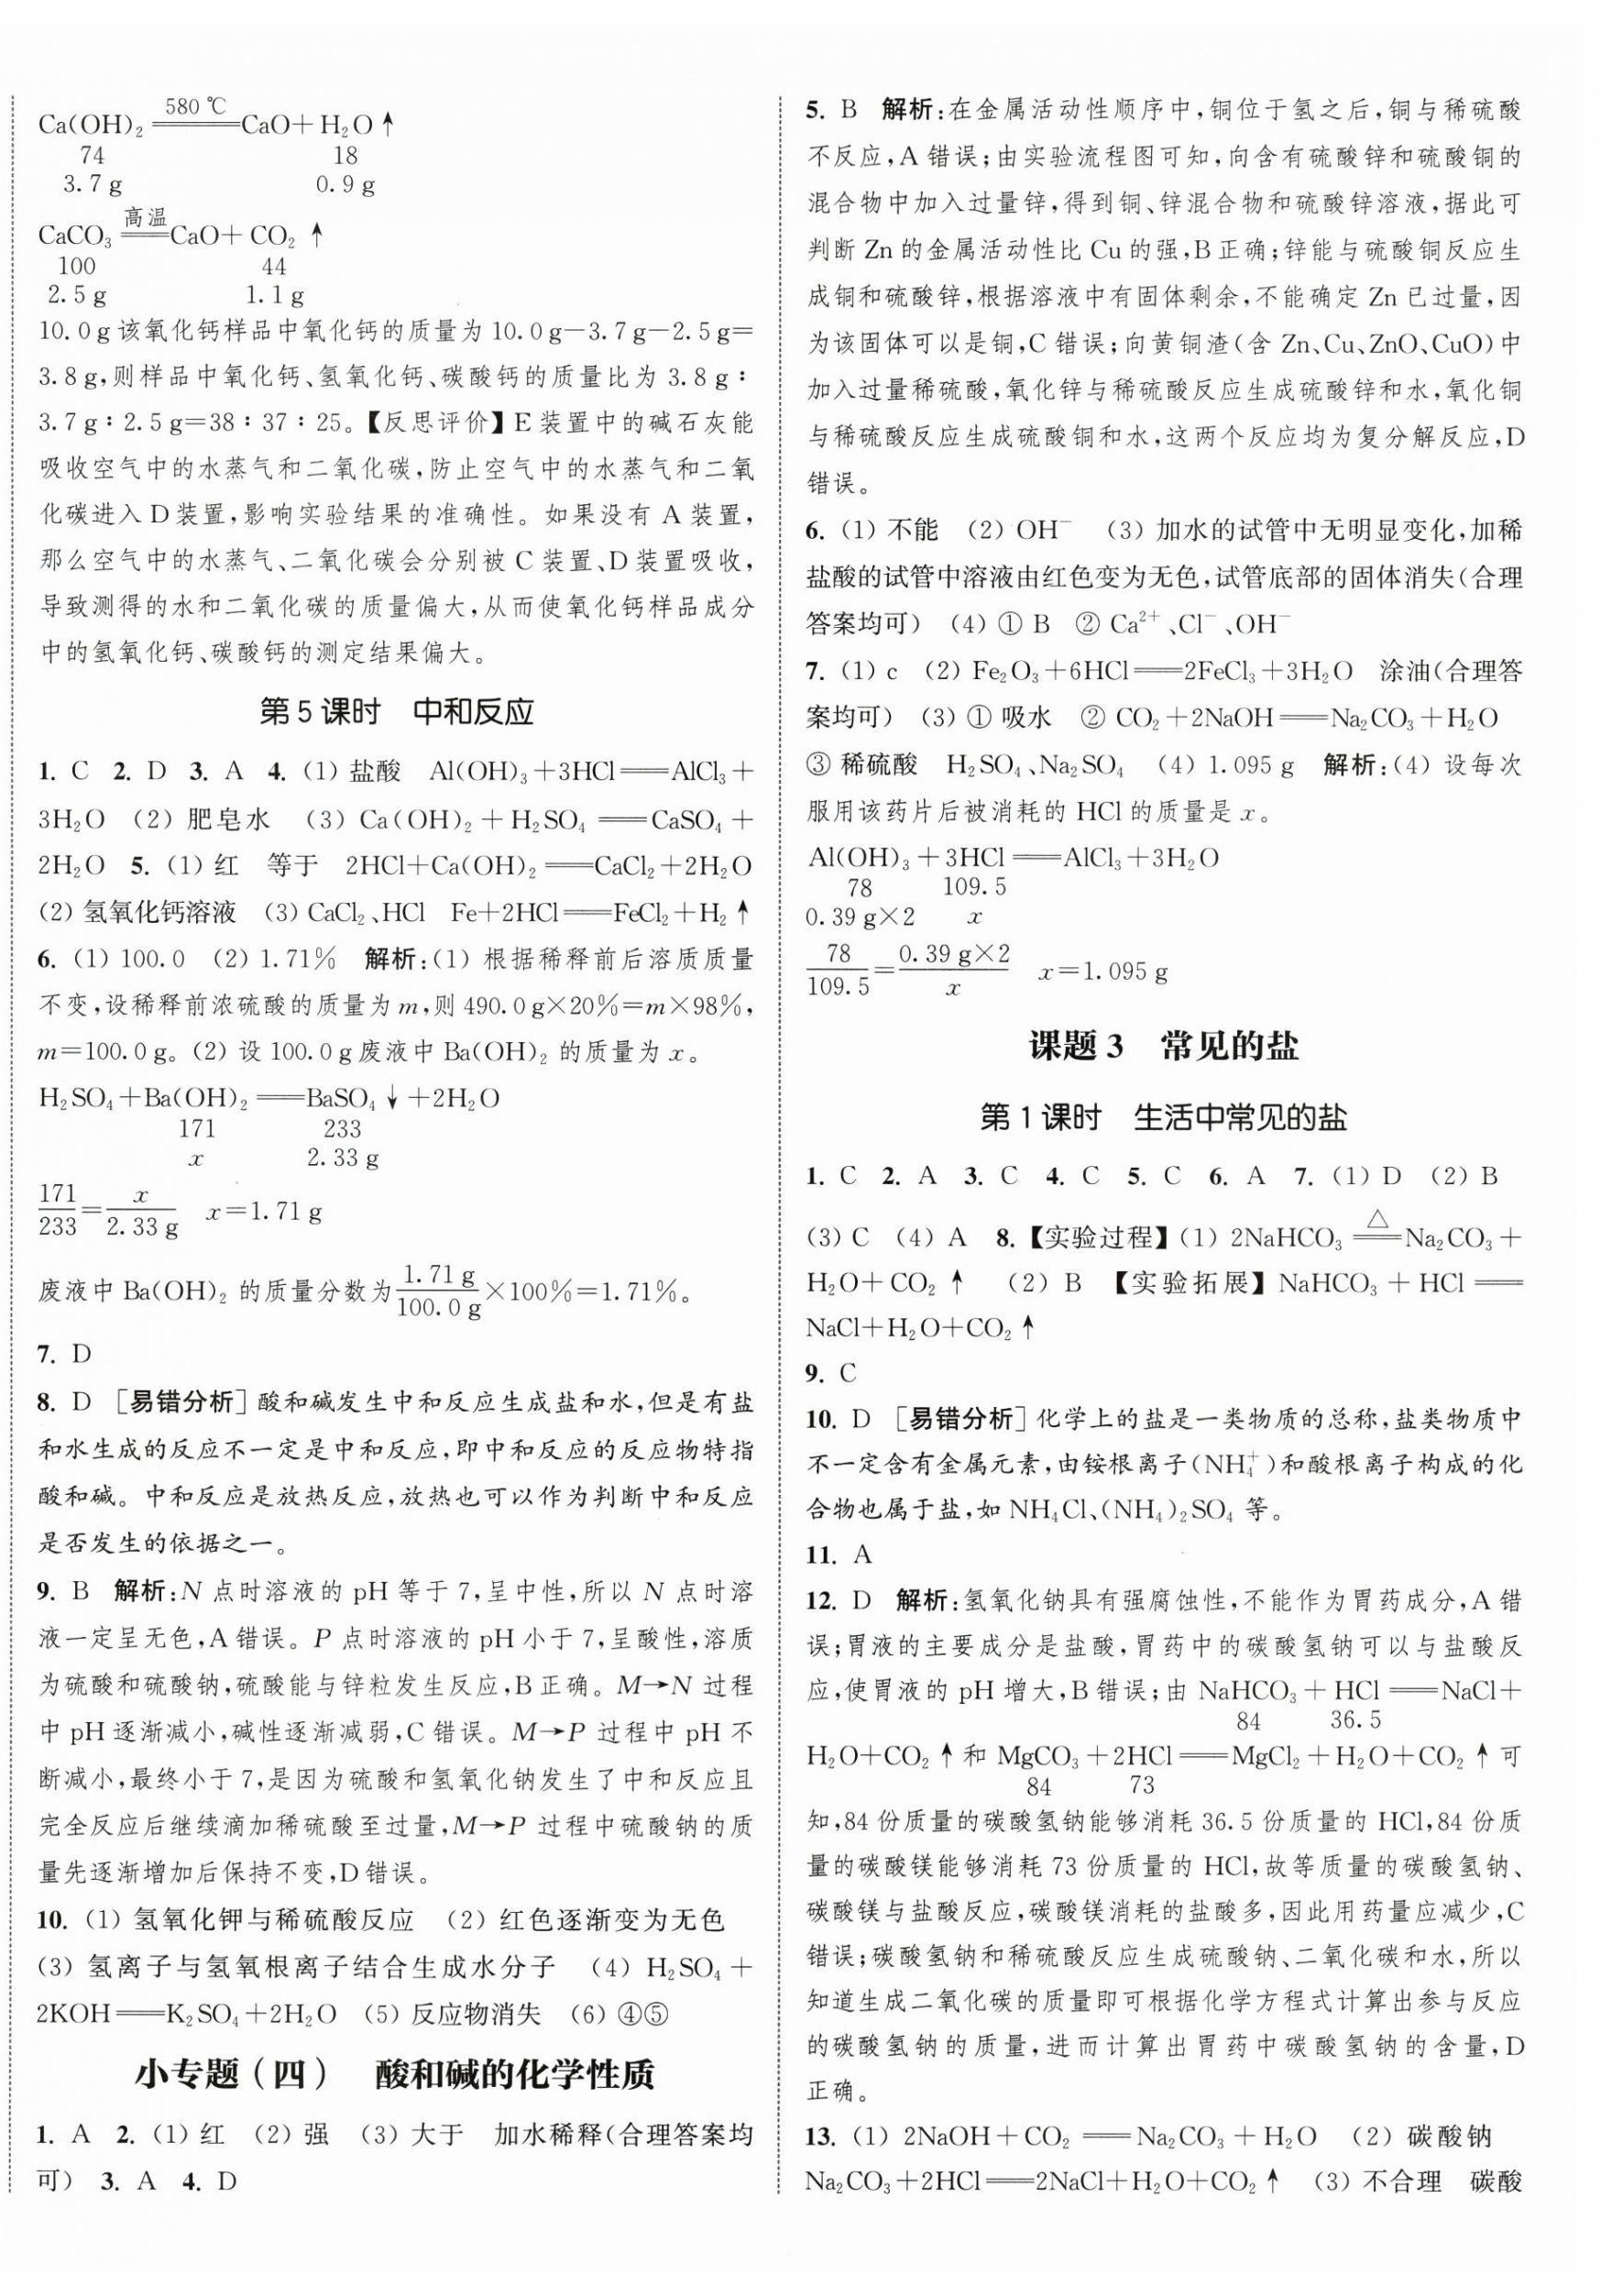 Ca(OH)₂ ═580 ℃═ CaO+H₂O↑
74 18
3.7 g 0.9 g
CaCO₃ ═高温═ CaO+CO₂↑
100 44
2.5 g 1.1 g
10.0 g 该氧化钙样品中氧化钙的质量为 10.0 g－3.7 g－2.5 g＝
3.8 g,则样品中氧化钙、氢氧化钙、碳酸钙的质量比为 3.8 g∶
3.7 g∶2.5 g＝38∶37∶25。【反思评价】E 装置中的碱石灰能
吸收空气中的水蒸气和二氧化碳,防止空气中的水蒸气和二氧
化碳进入 D 装置,影响实验结果的准确性。如果没有 A 装置,
那么空气中的水蒸气、二氧化碳会分别被 C 装置、D 装置吸收,
导致测得的水和二氧化碳的质量偏大,从而使氧化钙样品成分
中的氢氧化钙、碳酸钙的测定结果偏大。
第 5 课时 中和反应
1. C 2. D 3. A 4. (1) 盐酸 Al(OH)₃+3HCl══AlCl₃+
3H₂O (2) 肥皂水 (3) Ca(OH)₂+H₂SO₄══CaSO₄+
2H₂O 5. (1) 红 等于 2HCl+Ca(OH)₂══CaCl₂+2H₂O
(2) 氢氧化钙溶液 (3) CaCl₂、HCl Fe+2HCl══FeCl₂+H₂↑
6. (1) 100.0 (2) 1.71% 解析:(1) 根据稀释前后溶质质量
不变,设稀释前浓硫酸的质量为 m,则 490.0 g×20%＝m×98%,
m＝100.0 g。(2) 设 100.0 g 废液中 Ba(OH)₂ 的质量为 x。
H₂SO₄+Ba(OH)₂══BaSO₄↓+2H₂O
171 233
x 2.33 g
171/233＝x/2.33 g x＝1.71 g
废液中 Ba(OH)₂ 的质量分数为 1.71 g/100.0 g×100%＝1.71%。
7. D
8. D [易错分析]酸和碱发生中和反应生成盐和水,但是有盐
和水生成的反应不一定是中和反应,即中和反应的反应物特指
酸和碱。中和反应是放热反应,放热也可以作为判断中和反应
是否发生的依据之一。
9. B 解析:N 点时溶液的 pH 等于 7,呈中性,所以 N 点时溶
液一定呈无色,A 错误。P 点时溶液的 pH 小于 7,呈酸性,溶质
为硫酸和硫酸钠,硫酸能与锌粒发生反应,B 正确。M→N 过程
中 pH 逐渐减小,碱性逐渐减弱,C 错误。M→P 过程中 pH 不
断减小,最终小于 7,是因为硫酸和氢氧化钠发生了中和反应且
完全反应后继续滴加稀硫酸至过量,M→P 过程中硫酸钠的质
量先逐渐增加后保持不变,D 错误。
10. (1) 氢氧化钾与稀硫酸反应 (2) 红色逐渐变为无色
(3) 氢离子与氢氧根离子结合生成水分子 (4) H₂SO₄+
2KOH══K₂SO₄+2H₂O (5) 反应物消失 (6) ④⑤
小专题(四) 酸和碱的化学性质
1. A 2. (1) 红 (2) 强 (3) 大于 加水稀释(合理答案均
可) 3. A 4. D
5. B 解析:在金属活动性顺序中,铜位于氢之后,铜与稀硫酸
不反应,A 错误;由实验流程图可知,向含有硫酸锌和硫酸铜的
混合物中加入过量锌,得到铜、锌混合物和硫酸锌溶液,据此可
判断 Zn 的金属活动性比 Cu 的强,B 正确;锌能与硫酸铜反应生
成铜和硫酸锌,根据溶液中有固体剩余,不能确定 Zn 已过量,因
为该固体可以是铜,C 错误;向黄铜渣(含 Zn、Cu、ZnO、CuO)中
加入过量稀硫酸,氧化锌与稀硫酸反应生成硫酸锌和水,氧化铜
与稀硫酸反应生成硫酸铜和水,这两个反应均为复分解反应,D
错误。
6. (1) 不能 (2) OH⁻ (3) 加水的试管中无明显变化,加稀
盐酸的试管中溶液由红色变为无色,试管底部的固体消失(合理
答案均可) (4) ① B ② Ca²⁺、Cl⁻、OH⁻
7. (1) c (2) Fe₂O₃+6HCl══2FeCl₃+3H₂O 涂油(合理答
案均可) (3) ① 吸水 ② CO₂+2NaOH══Na₂CO₃+H₂O
③ 稀硫酸 H₂SO₄、Na₂SO₄ (4) 1.095 g 解析:(4) 设每次
服用该药片后被消耗的 HCl 的质量是 x。
Al(OH)₃+3HCl══AlCl₃+3H₂O
78 109.5
0.39 g×2 x
78/109.5＝0.39 g×2/x x＝1.095 g
课题 3 常见的盐
第 1 课时 生活中常见的盐
1. C 2. A 3. C 4. C 5. C 6. A 7. (1) D (2) B
(3) C (4) A 8.【实验过程】(1) 2NaHCO₃ ═△═ Na₂CO₃+
H₂O+CO₂↑ (2) B 【实验拓展】NaHCO₃+HCl══
NaCl+H₂O+CO₂↑
9. C
10. D [易错分析]化学上的盐是一类物质的总称,盐类物质中
不一定含有金属元素,由铵根离子(NH₄⁺)和酸根离子构成的化
合物也属于盐,如 NH₄Cl、(NH₄)₂SO₄ 等。
11. A
12. D 解析:氢氧化钠具有强腐蚀性,不能作为胃药成分,A 错
误;胃液的主要成分是盐酸,胃药中的碳酸氢钠可以与盐酸反
应,使胃液的 pH 增大,B 错误;由 NaHCO₃+HCl══NaCl+
84 36.5
H₂O+CO₂↑和 MgCO₃+2HCl══MgCl₂+H₂O+CO₂↑可
84 73
知,84 份质量的碳酸氢钠能够消耗 36.5 份质量的 HCl,84 份质
量的碳酸镁能够消耗 73 份质量的 HCl,故等质量的碳酸氢钠、
碳酸镁与盐酸反应,碳酸镁消耗的盐酸多,因此用药量应减少,C
错误;碳酸氢钠和稀硫酸反应生成硫酸钠、二氧化碳和水,所以
知道生成二氧化碳的质量即可根据化学方程式计算出参与反应
的碳酸氢钠的质量,进而计算出胃药中碳酸氢钠的含量,D
正确。
13. (1) 2NaOH+CO₂══Na₂CO₃+H₂O (2) 碳酸钠
Na₂CO₃+2HCl══2NaCl+H₂O+CO₂↑ (3) 不合理 碳酸